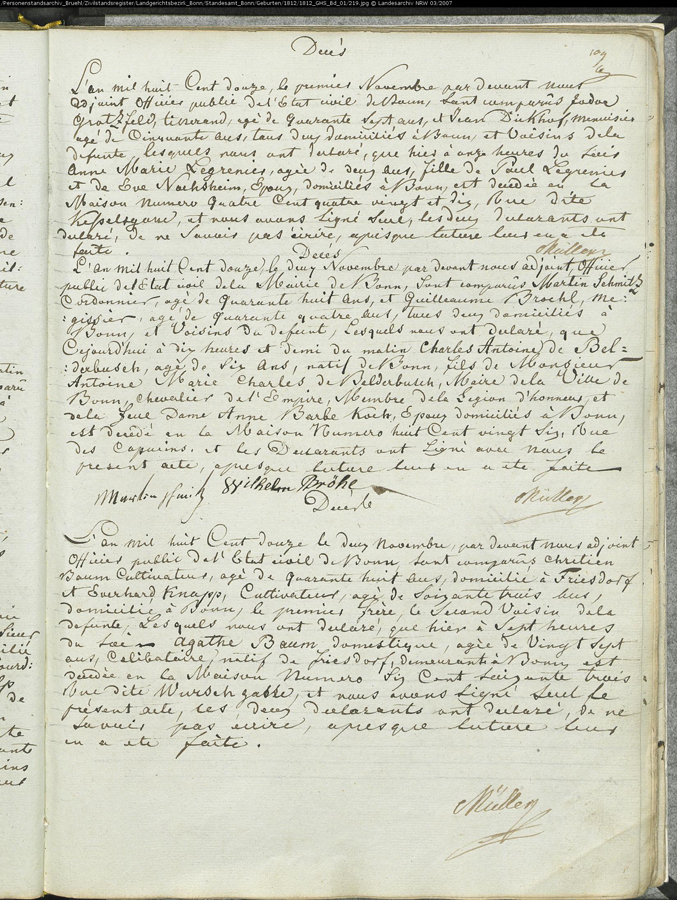 /Personenstandsarchiv_Bruehl/Zivilstandsregister/Landgerichtsbezirk_Bonn/Standesamt_Bonn/Geburten/1812/1812_GHS_Bd_01/219.jpg © Landesarchiv NRW 03/2007
Decés
L'an mil huit Cent douze, le premier Novembre par devant nous
adjoint Officier public de l'Etat civil de Bonn, sont comparûs
Gratzfeld, tisserand, agé de quarante Sept ans, et Jean Dickhof, menuisier
agé de Cinquante ans, tous deux domiciliés à Bonn, et Voisins de la
defunte, lesquels nous ont declaré, que hier à onze heures du soir
Anne Marie Legrenier, agée de deux ans, fille de Paul Legrenier
et de Eve Nachsheim, Epoux, domiciliés à Bonn, est decedée en la
Maison numero quatre Cent quatre vingt et dix, Rue dite
et nous avons signé seul, les deux declarants ont
declaré, de ne savoir pas écrire, apresque lecture leur en a ete
faite.
Müller
Decés
L'an mil huit Cent douze, le deux Novembre par devant nous adjoint Officier
public de l'Etat civil de la Mairie de Bonn, sont comparus Martin Schmitz
Cordonnier, agé de quarante huit ans, et Guilleaume Broehl, me=
:gissier, age de quarante quatre ans, tous deux domiciliés à
Bonn, et Voisins du defunt, lesquels nous ont declaré, que
Cejourd'hui à dix heures et demi du matin Charles Antoine de Bel=
:derbusch, agé de Six ans, natif de Bonn, fils de Monsieur
Antoine Marie Charles, de Belderbusch, Maire de la Ville de
Bonn, Chevalier de l'Empire, Membre de la Legion d'honneur, et
de la feue Dame Anne Barbe Koch, Epoux domiciliés à Bonn,
est decédé en la Maison Numero huit Cent vingt Six, Rue
des Capucins. et les Declarants ont signé avec nous le
present acte, apresque lecture leur en a ete faite
Wilhelm Bröhl
Müller
Decès
L'an mil huit Cent douze le deux Novembre, par devant nous adjoint
Officier public de l'Etat civil de Bonn, sont comparus Chretien
Baum Cultivateur, agé de quarante huit ans, domicilié à Friesdorf
et Everhard Knapp, Cultivateur, agé de Soixante trois ans,
domicilié à Bonn, le premier frère, le second Voisin de la
defunte, lesquels nous ont declaré, que hier à Sept heures
du soir Agathe Baum domestique, agée de Vingt Sept
ans, Celibataire, natif de Friesdorf, demeurant à Bonn est
decedée en la Maison Numero Six Cent Soixante trois
Rue dite Wurschgasse, et nous avons signé seul le
présent acte, les deux declarants ont declaré, de ne
savoir pas écrire, apresque lecture leur
en a ete faite.
Müller